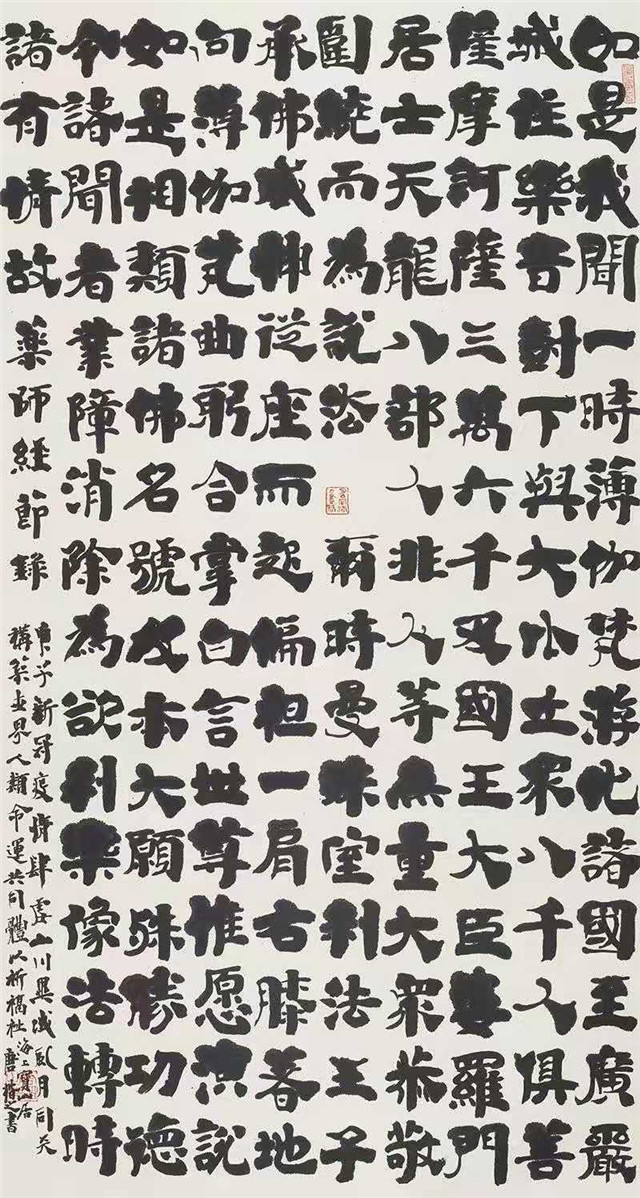 如是我聞一時薄伽梵游化諸國至廣嚴
城住樂音樹下與大比丘眾八千人俱菩
薩摩訶薩三萬六千及國王大臣婆羅門
居士天龍八部人非人等無量大眾恭敬
圍繞而為說法 爾時曼殊室利法王子
承佛威神從座而起偏袒一肩右膝著地
向薄伽梵曲躬合掌白言世尊惟愿演說
如是相類諸佛名號及本大願殊勝功德
令諸聞者業障消除為欲利樂像法轉時
諸有情故 藥師經節錄
庚子新冠疫情肆虐山川異域風月同天
構築世界人類命運共同體以祈福祉
海上寶山居
唐楷之書